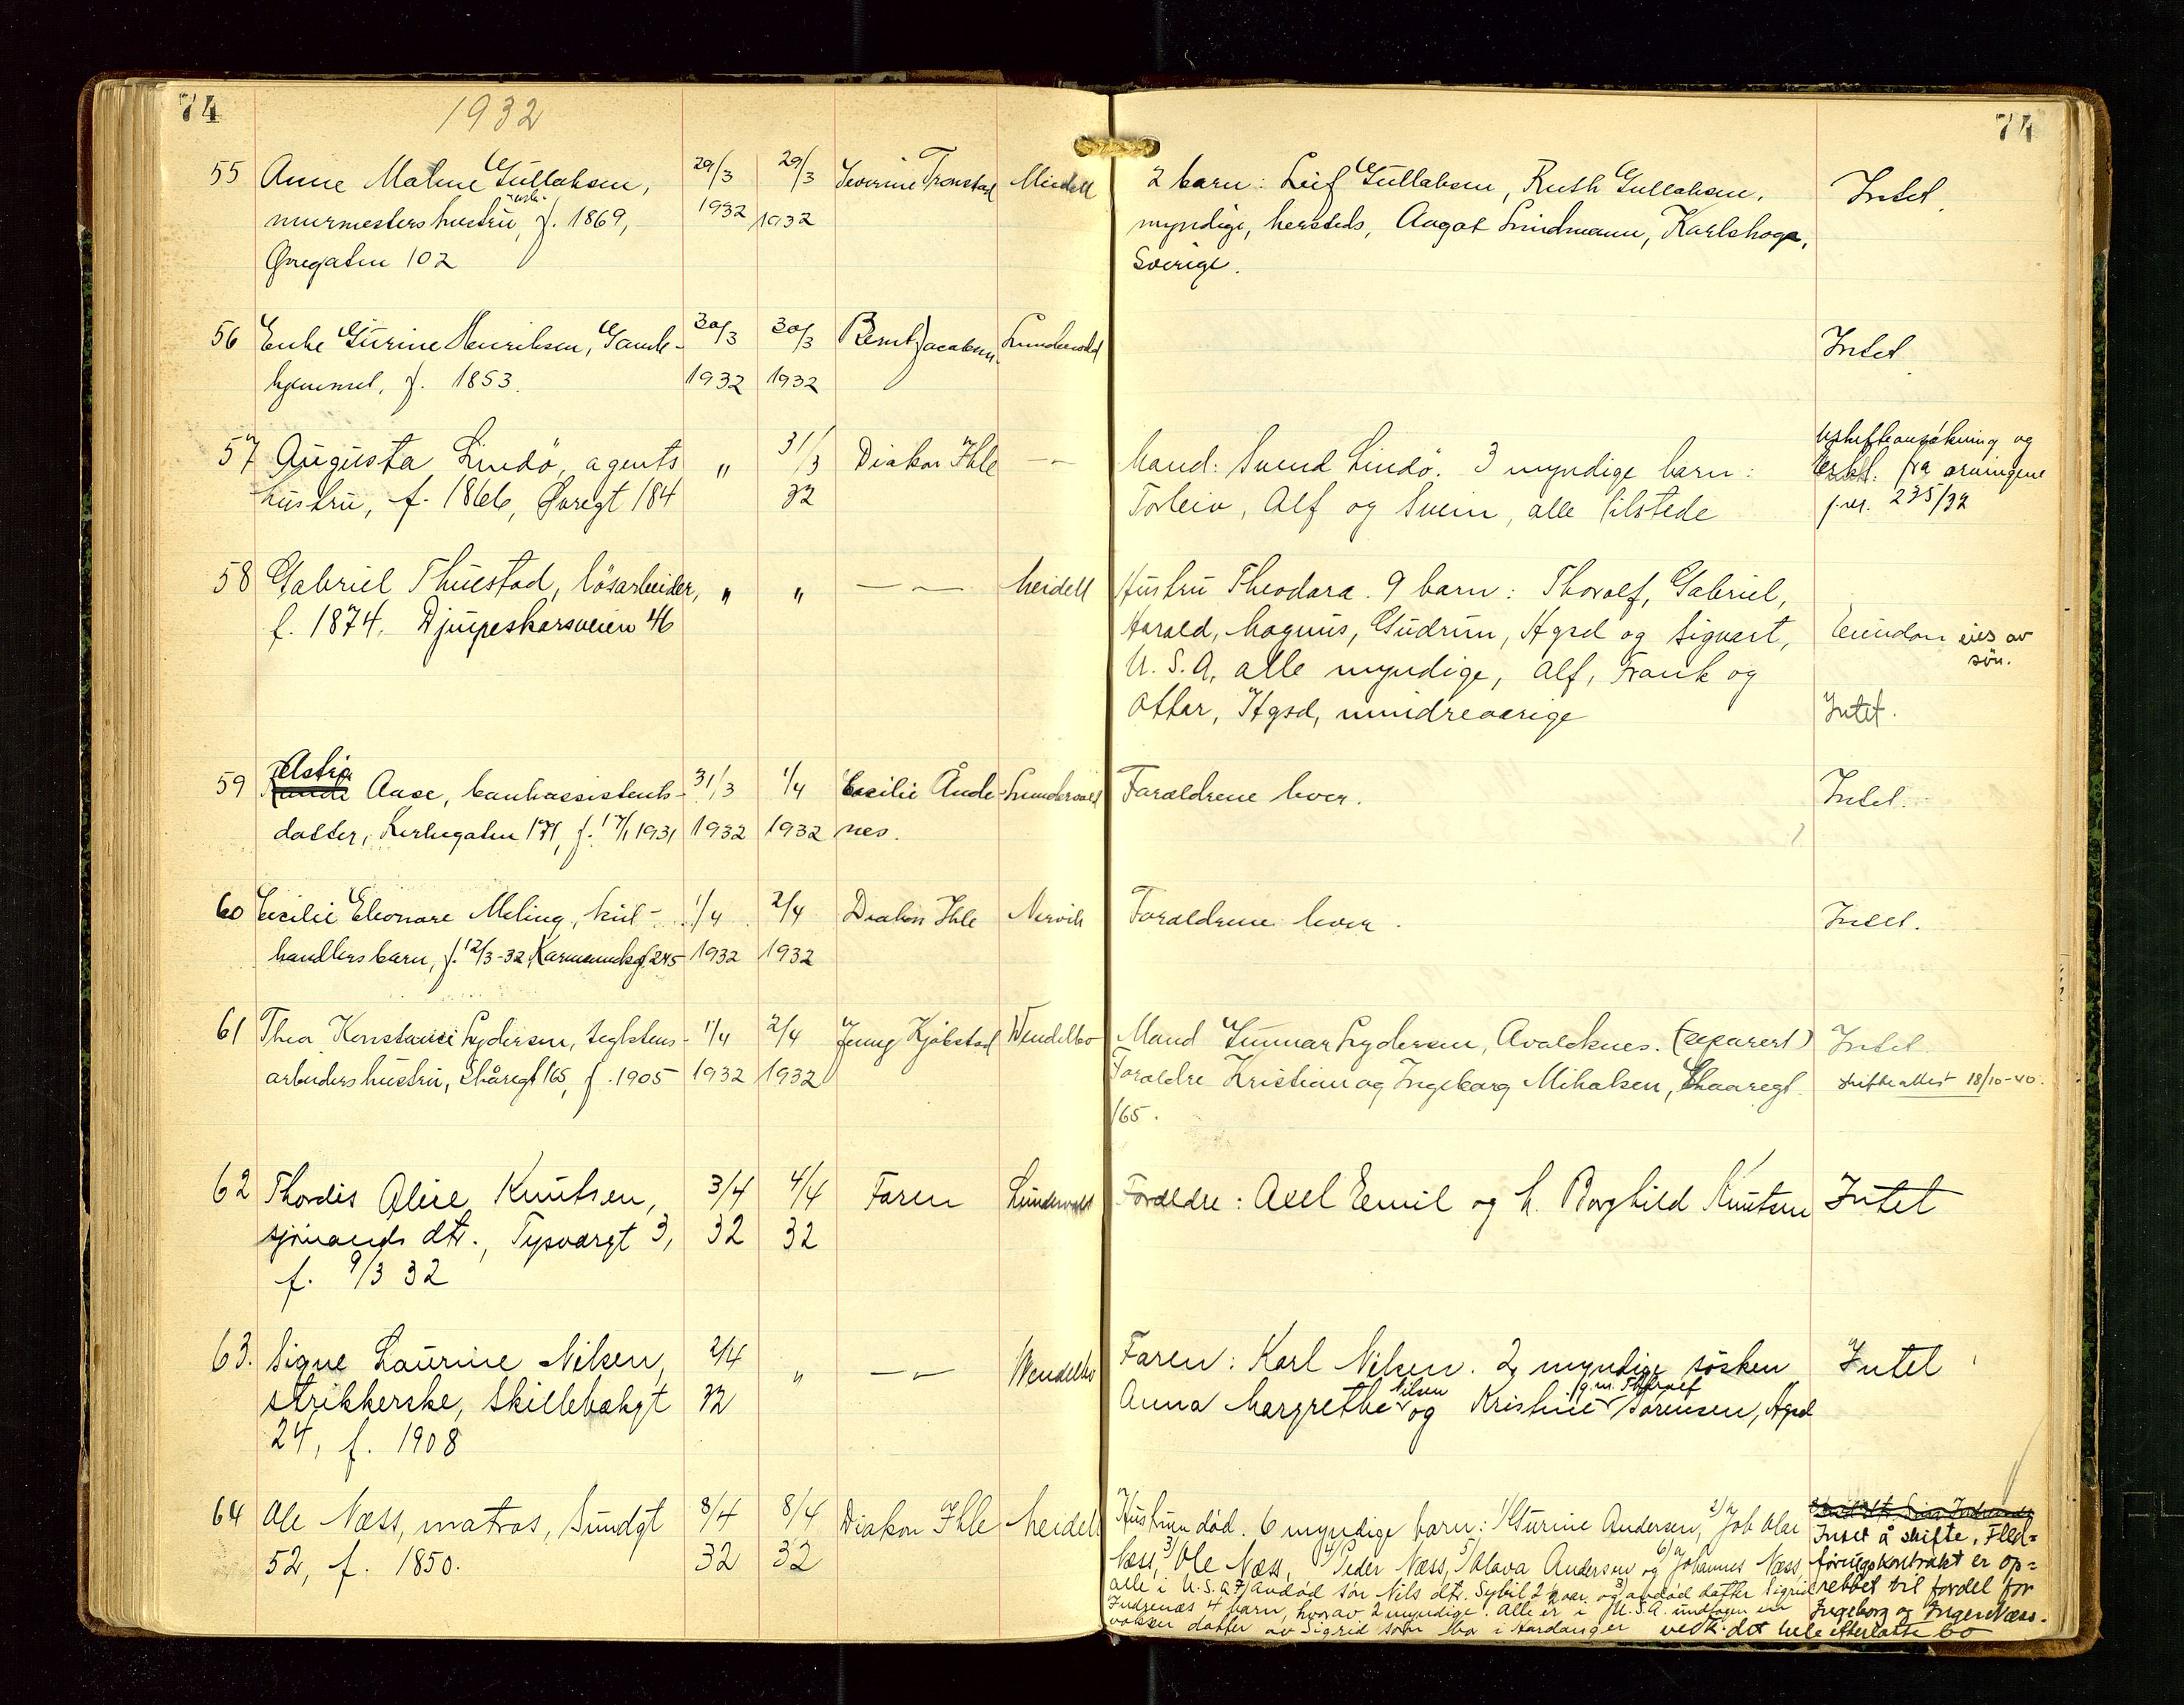 74
1932
74
55 Anne Malene Gullaksen, 29/3 29/3 Severine Tronstad Meidell 2 barn: Leif Gullaksen, Ruth Gullaksen, Intet.
murmesters hustru, f. 1869, 1932 1932 myndige, hersteds, Aagot Lindmann, Karlskoga,
Øvregaten 102 Sverige.
56 Enke Gurine Henriksen, Gamle- 30/3 30/3 Bernt Jacobsen Lundevold Intet
hjemmet, f. 1853. 1932 1932
57 Augusta Lindö, agents " 31/3 Diakon Ihle —"— Mand: Svend Lindö. 3 myndige barn: Uskifteansökning og
hustru, f. 1866, Øvregt 184 32 Torleiv, Alf og Svein, alle tilstede erkl. fra arvingene
j.nr. 235/32
58 Gabriel Thuestad, lösarbeider, " " —"— Meidell Hustru Theodora. 9 barn: Thoralf, Gabriel,
f. 1874. Djupeskarsveien 46 Harald, Magnus, Gudrun, Hgsd og Sigvart, Eiendom eies av
sön.
U.S.A, alle myndige, Alf, Frank og
Ottar, Hgsd, mindreaarige Intet.
Astri
59 Aase, bankassistents- 31/3 1/4 Cecilie Ånde- Lundevold Forældrene lever. Intet.
datter, Kirkegaten 171, f. 17/1 1931 1932 1932 nes.
60 Cecilie Eleonore Meling, kul- 1/4 2/4 Diakon Ihle Nervik Forældrene lever. Intet.
handlers barn, f. 12/3-32, Karmsundsg. 245 1932 1932
61 Thea Konstanse Lydersen, teglstens- 1/4 2/4 Jenny Kjökstad Wendelbo Mand Gunnar Lydersen, Avaldsnes. (separert) Intet
arbeiders hustru, Skåregt 165, f. 1905 1932 1932 Forældre Kristian og Ingeborg Mikalsen, Skaaregt. skifteattest 18/10-40.
165.
62 Thordis Alice Knutsen, 3/4 4/4 Faren Lundevold Forældre: Axel Emil og h. Borghild Knutsen Intet
sjömands dtr., Tysværgt 3, 32 32
f. 9/3 32
63. Signe Laurine Nilsen, 2/4 " —"— Wendelbo Faren: Karl Nilsen. 2 myndige sösken Intet
Nilsen g.m. Thoralf
strikkerske, Skillebækgt 32 Anna Margrethe og Kristine Sörensen, Hgsd
24, f. 1908
64 Ole Næss, matros, Sundgt 8/4 8/4 Diakon Ihle Meidell Hustrun död. 6 myndige barn: 1/ Gurine Andersen, 2/ Job Olai
52, f. 1850. 32 32 Næss, 3/ Ole Næss, 4/ Peder Næss, 5/ Olava Andersen og 6/ Johannes Næss, Intet å skifte, Flid-
alle i U.S.A. 7/ avdöd sön Nils dtr. Sybil 2½ aar og avdöd datter Sigrid föringskontrakt er op-
Indrenæs 4 barn, hvorav 2 myndige. Alle er i U.S.A. undtagen en rettet til fordel for
voksen datter av Sigrid som bor i Hardanger Ingeborg og Inger Næss.
vedk. det hele efterlatte bo